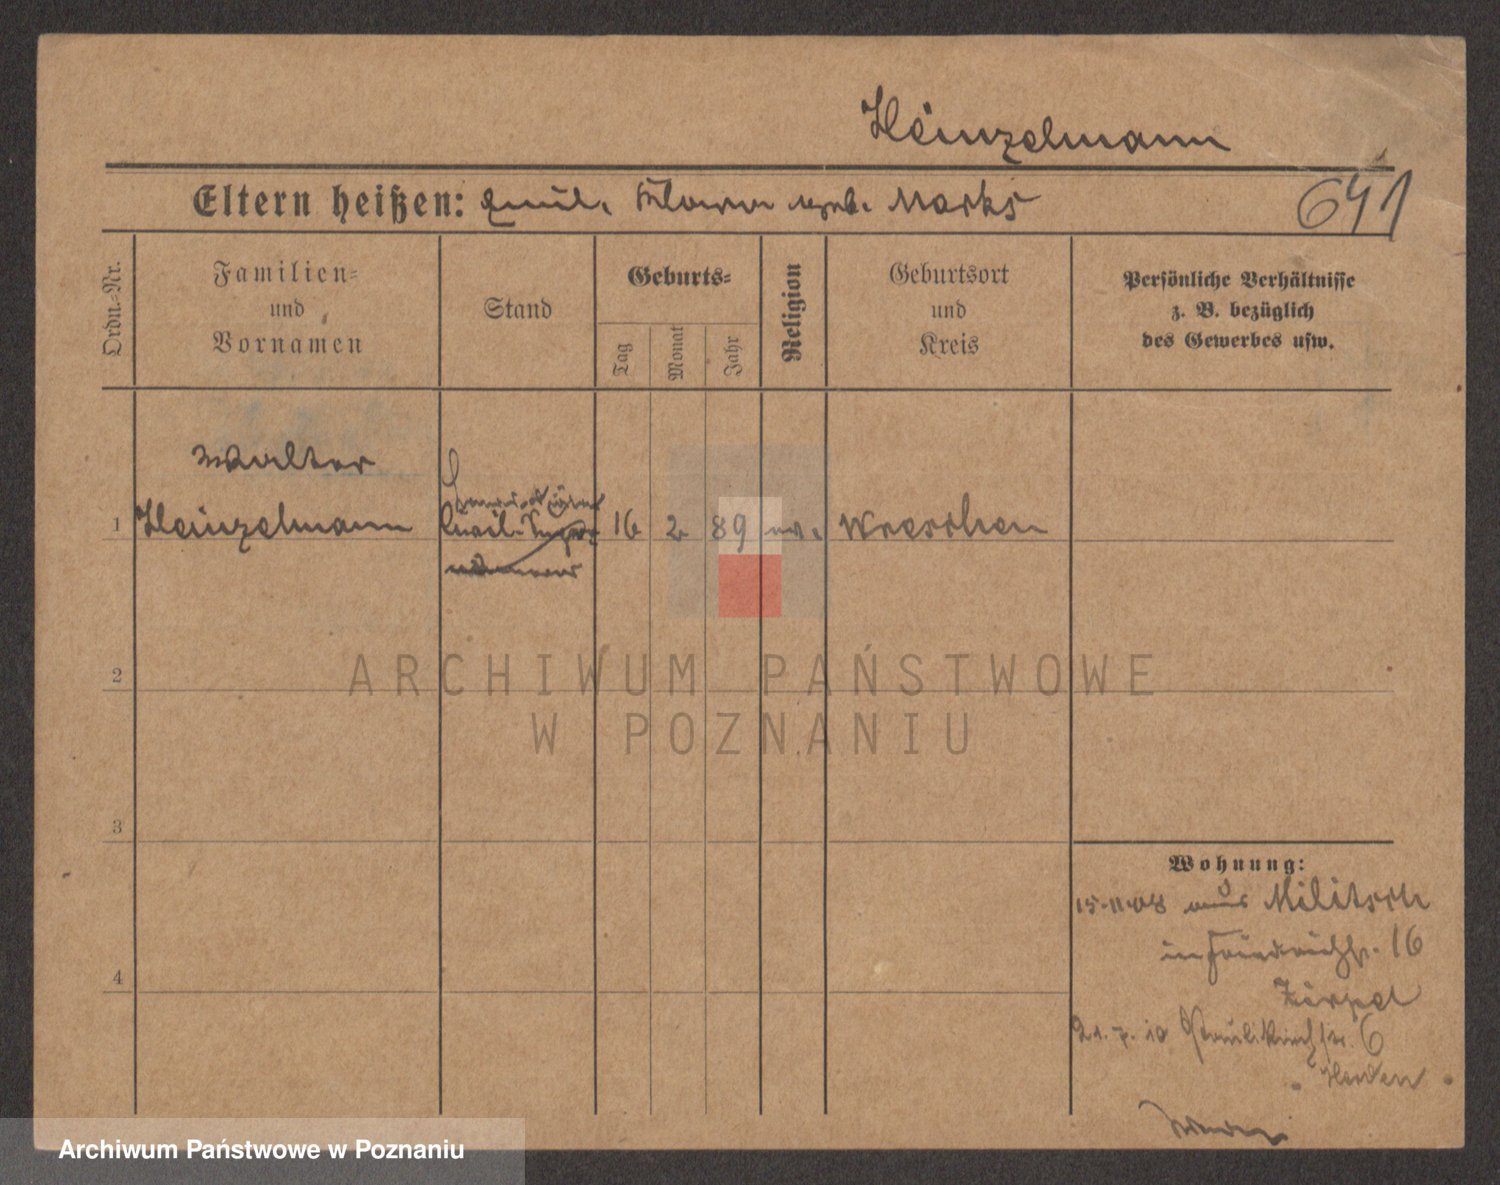 Heinzelmann
Eltern heißen: Emil, Klara geb. Marks
641
Ordn.=Nr.
Familien=
und
Vornamen
Stand
Geburts=
Tag
Monat
Jahr
Religion
Geburtsort
und
Kreis
Persönliche Verhältnisse
z. B. bezüglich
des Gewerbes usw.
Walter
1 Heinzelmann 16 2 89 ev. Wreschen
2
3
4
Wohnung:
15.11.08 aus Militsch
in Friedrichstr. 16
21.7.10 Paulikirchstr. 6
ARCHIWUM PAŃSTWOWE
W POZNANIU
Archiwum Państwowe w Poznaniu